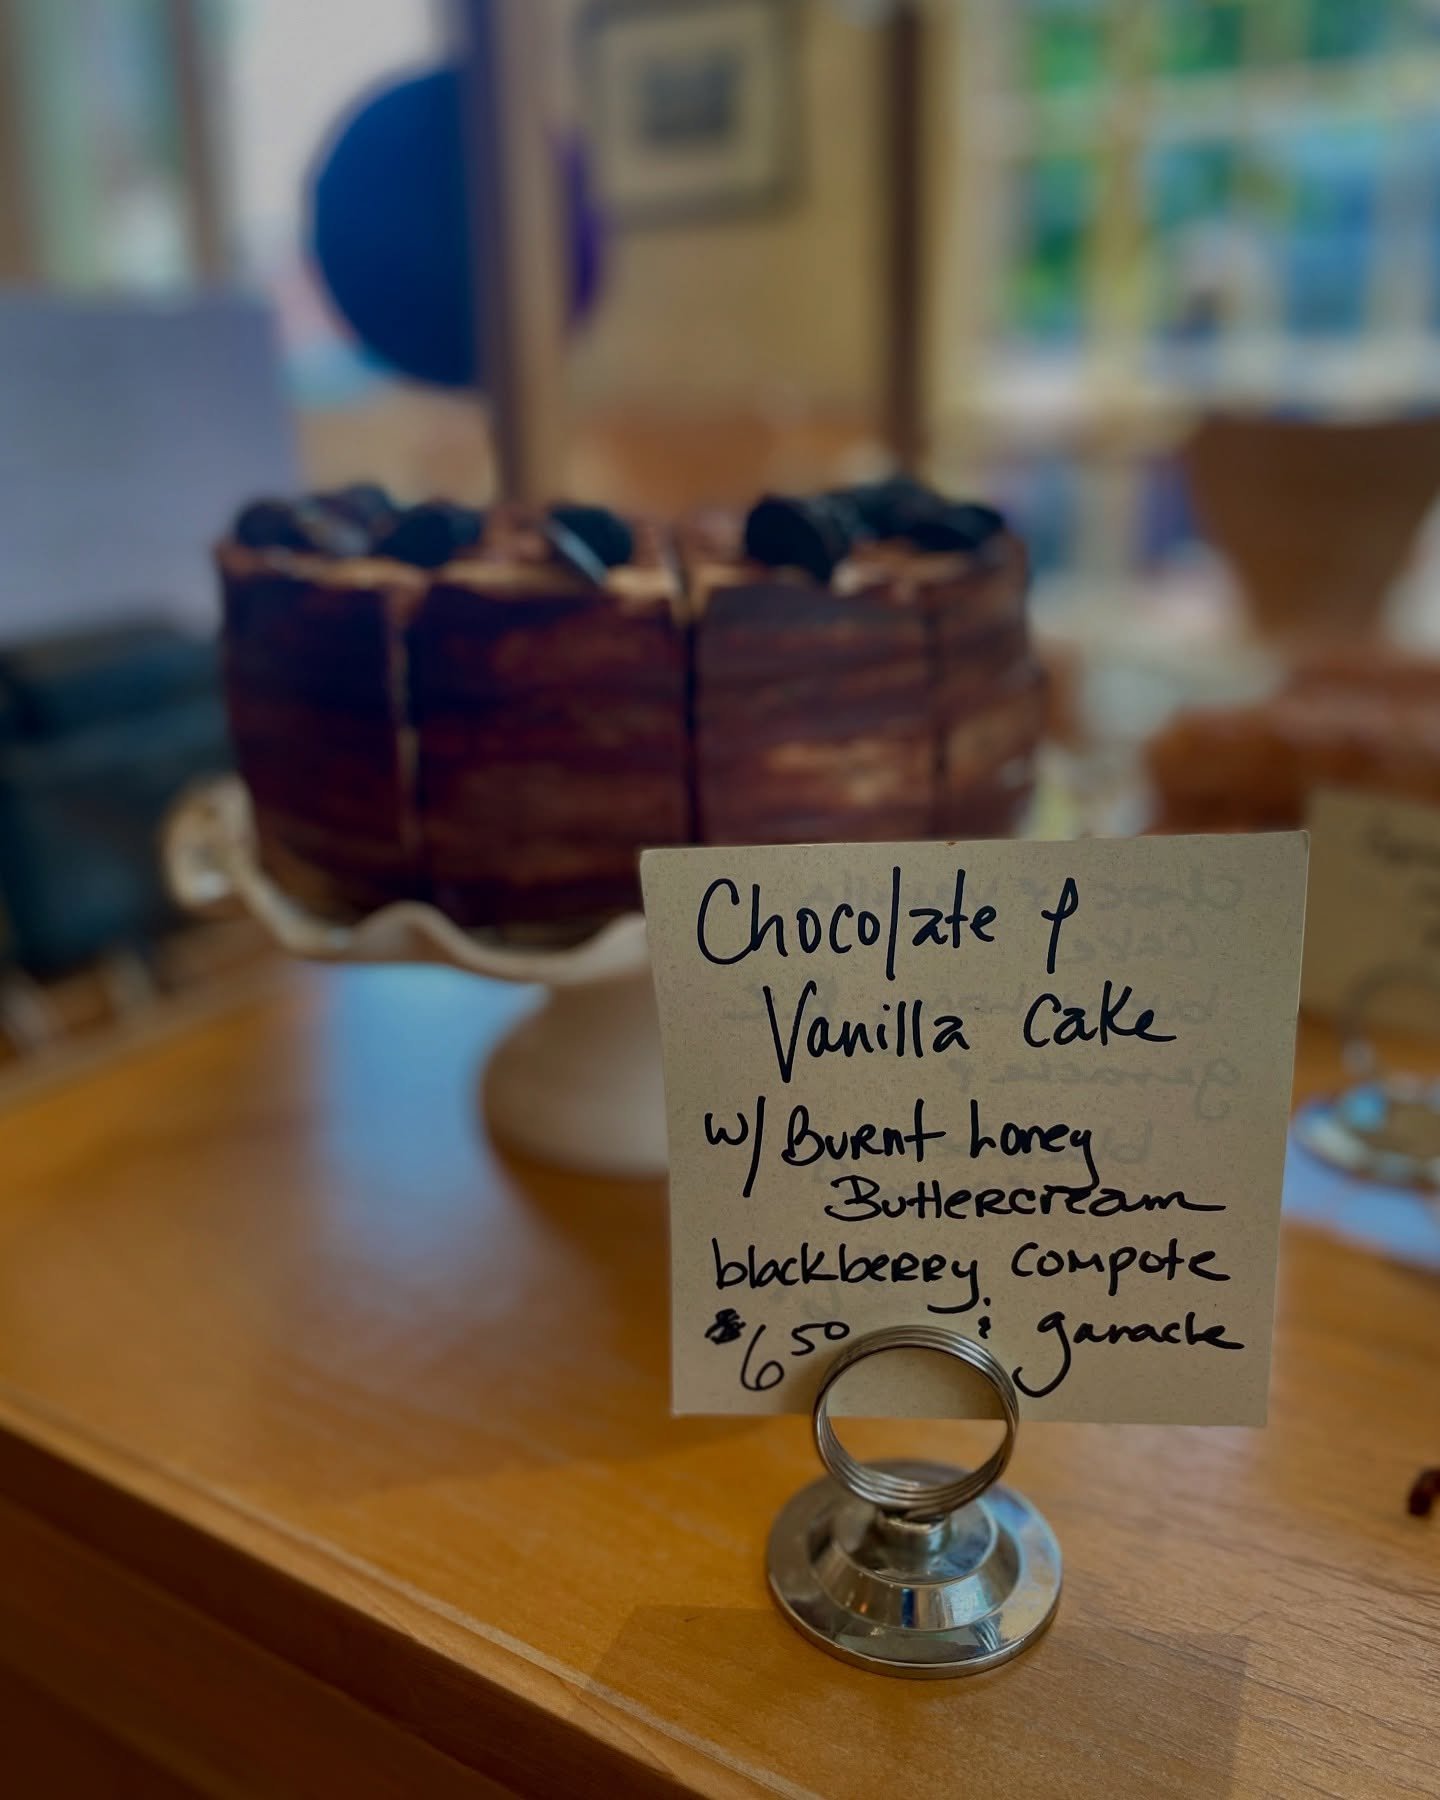 Chocolate &
Vanilla Cake
w/ Burnt honey
Buttercream
blackberry compote
$6 50 & ganache